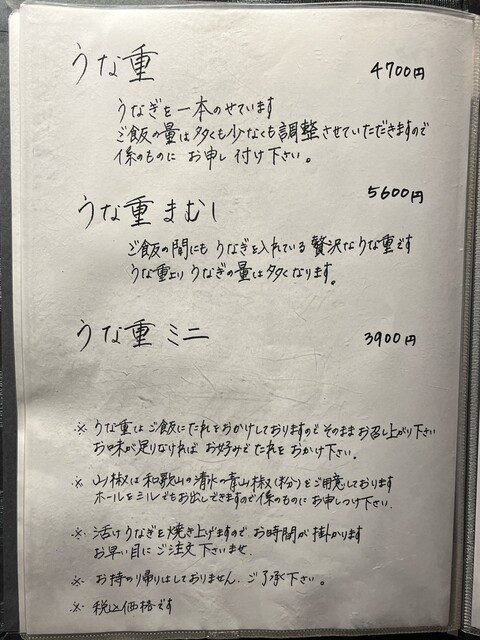 うな重 4700円
うなぎを一本のせています
ご飯の量は多くも少なくも調整させていただきますので
係のものに お申し付け下さい。
うな重まむし 5600円
ご飯の間にも うなぎを入れている 贅沢なうな重です
うな重より うなぎの量は多くなります。
うな重ミニ 3900円
※ うな重はご飯にたれをおかけしておりますので そのまま お召し上がり下さい
お味が足りなければ お好みでたれを おかけ下さい。
※ 山椒は和歌山の清水の青山椒(粉分)をご用意しております
ホールをミルでもお出しできますので係のものに お申しつけ下さい.
※ 活けうなぎを焼き上げますので、お時間が掛かります
お早い目に ご注文下さいませ.
※ お持り帰りはしておりません. ご了承下さい。
※ 税込価格です